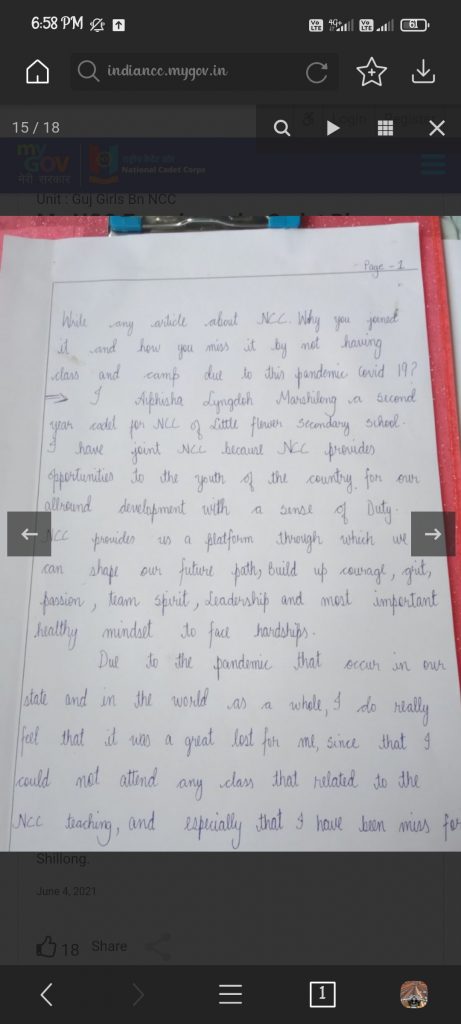 6:58 PM
4G+
VoLTE
VoLTE
61
indiancc.mygov.in
15 / 18
Login
my
GOV
मेरी सरकार
राष्ट्रीय कैडेट कोर
National Cadet Corps
Unit : Guj Girls Bn NCC
Page - 1
Write any article about NCC. Why you joined
it and how you miss it by not having
class and camp due to this pandemic Covid 19?
⇒ I Aiphisha Lyngdoh Marshilong a second
year cadet for NCC of Little flower secondary school.
I have joint NCC because NCC provides
opportunities to the youth of the country for our
allround development with a sense of Duty.
NCC provides us a platform through which we
can shape our future path, Build up courage, grit,
passion, team spirit, Leadership and most important
healthy mindset to face hardships.
Due to the pandemic that occur in our
state and in the world as a whole, I do really
feel that it was a great lost for me, since that I
could not attend any class that related to the
NCC teaching, and especially that I have been miss for
Shillong.
June 4, 2021
18 Share
1